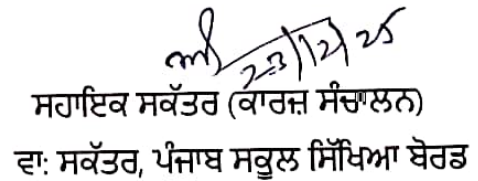 23/12/25
ਸਹਾਇਕ ਸਕੱਤਰ (ਕਾਰਜ਼ ਸੰਚਾਲਨ)
ਵਾ: ਸਕੱਤਰ, ਪੰਜਾਬ ਸਕੂਲ ਸਿੱਖਿਆ ਬੋਰਡ